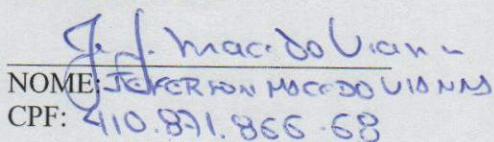 J. J. Macedo Viann
NOME: JEFERSON MACEDO VIANNA
CPF: 410.891.866-68